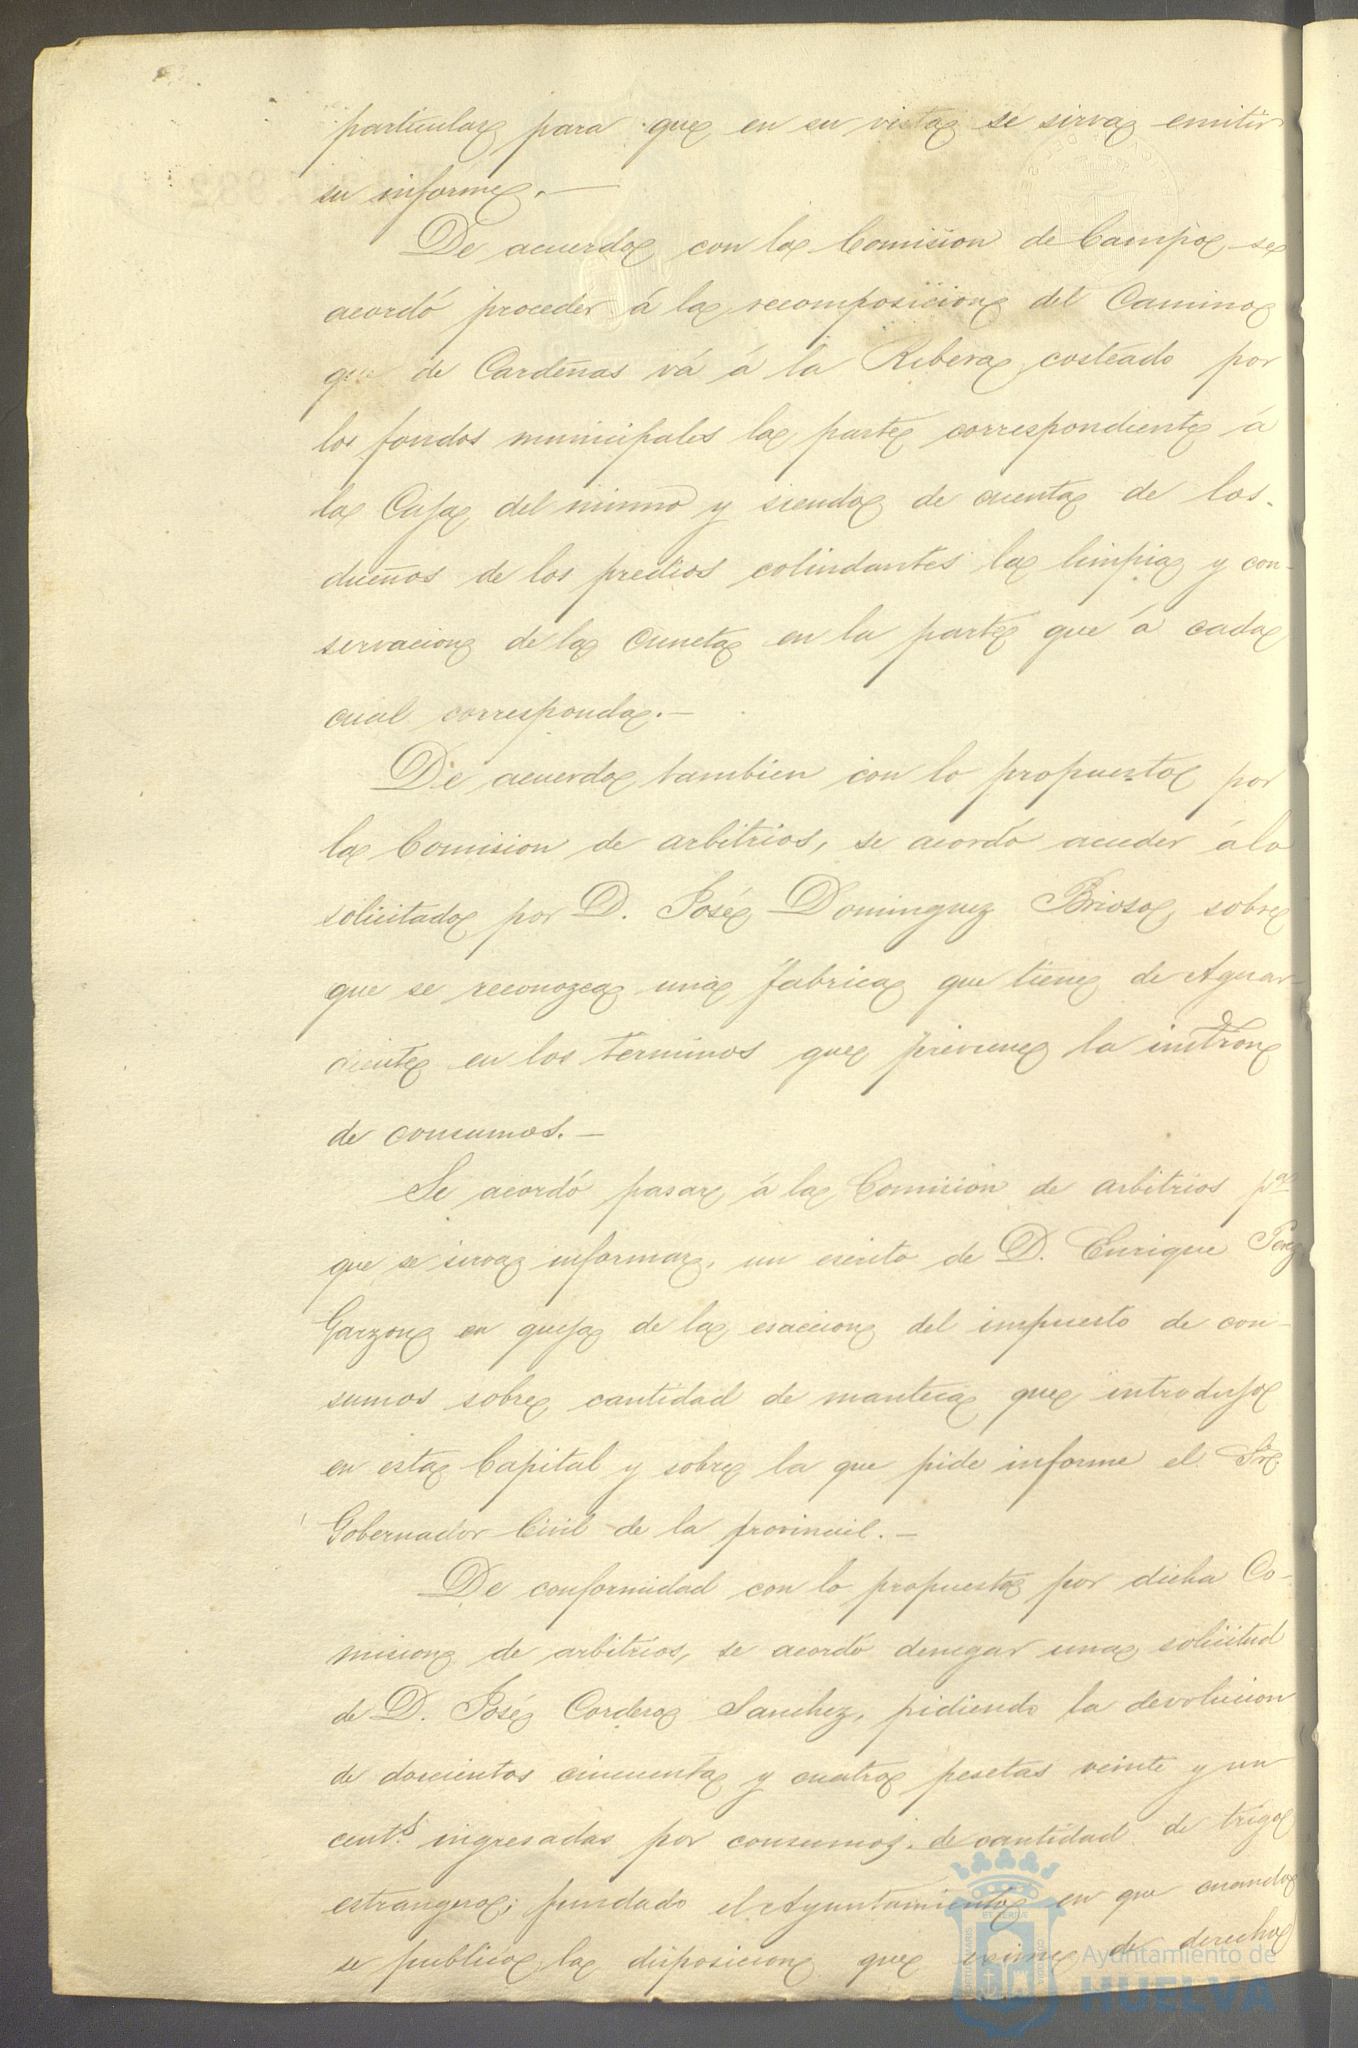 particular para que en su vista se sirva emitir
su informe.—
De acuerdo con la Comision de Campo, se
acordó proceder á la recomposicion del Camino
que de Cardeñas vá á la Ribera, costeado por
los fondos municipales la parte correspondiente á
la Caja del mismo y siendo de cuenta de los
dueños de los predios colindantes la limpia y con-
servacion de la cuneta en la parte que á cada
cual corresponda.—
De acuerdo tambien con lo propuesto por
la Comision de arbitrios, se acordó acceder á lo
solicitado por D. José Dominguez Brioso, sobre
que se reconozca una fabrica que tiene de Aguar-
diente en los terminos que previene la instron
de consumos.—
Se acordó pasar á la Comision de arbitrios pa
que se sirva informar, un escrito de D. Enrique Perez
Garzon en queja de la esaccion del impuesto de con-
sumos sobre cantidad de manteca que introdujo
en esta Capital y sobre la que pide informe el Sr
Gobernador Civil de la provincil.—
De conformidad con lo propuesto por dicha Co-
mision de arbitrios, se acordó denegar una solicitud
de D. José Cordero Sanchez, pidiendo la devolucion
de doscientos cincuenta y cuatro pesetas veinte y un
cents ingresadas por consumos de cantidad de trigo
estrangero; fundado el Ayuntamiento en que cuando
se publico la disposicion que exime de derecho
Ayuntamiento de
HUELVA